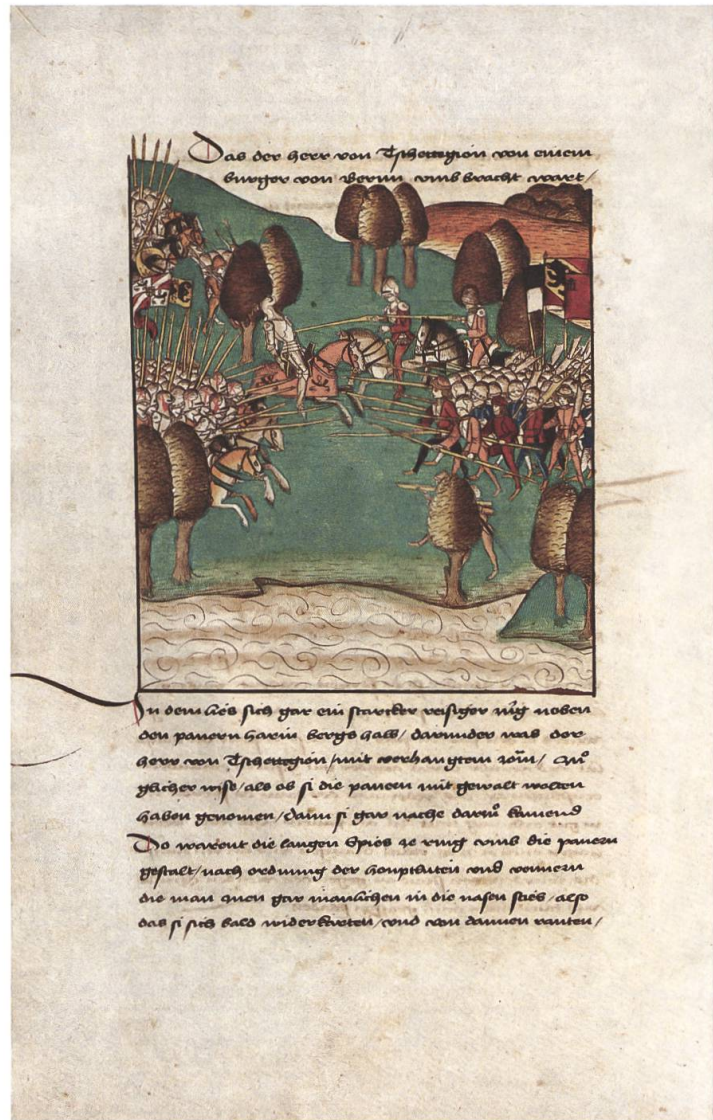 Das der herr von Tschettegion von einem
burger von Bernn umb bracht wart /
In dem lies sich gar ein starcker reisiger zùg neben
den panern harin bergs halb / darunder was der
herr von Tschettegion / mit verhangtem zöm /
glicher wise / als ob si die panern mit gewalt wolten
haben genomen / dann si gar nache darzů kamend
Do warent die langen Spies ze ring umb die panern
gestalt / nach ordnung der houptlüten und vennern
die man inen gar manlichen in die nasen sties / also
das si sich bald widerkarten / und von dannen ranten /